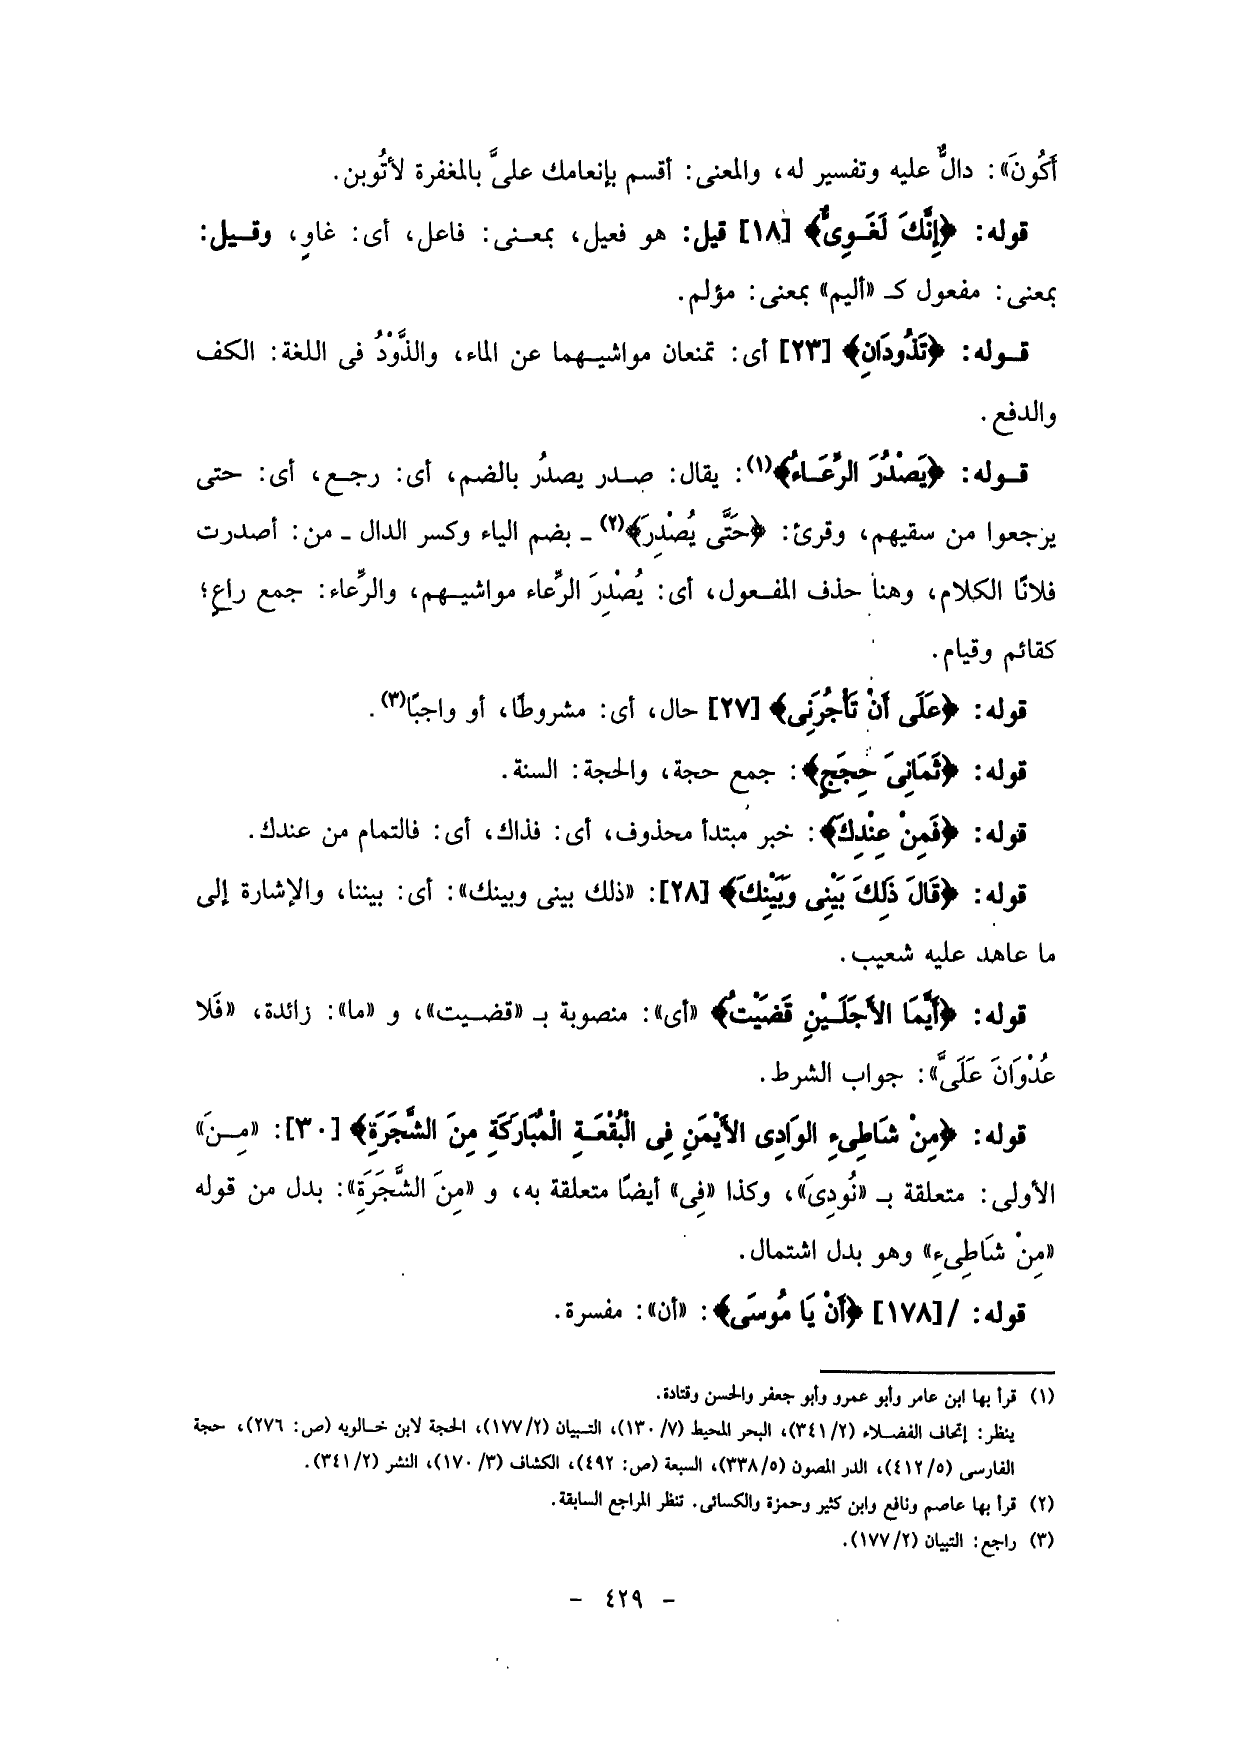 أَكُونَ»: دالٌّ عليه وتفسير له، والمعنى: أقسم بإنعامك علىَّ بالمغفرة لأتُوبن.
قوله: ﴿إِنَّكَ لَغَوِىٌّ﴾ [١٨] قيل: هو فعيل، بمعنى: فاعل، أى: غاوٍ، وقيل:
بمعنى: مفعول كـ «أليم» بمعنى: مؤلم.
قوله: ﴿تَذُودَانِ﴾ [٢٣] أى: تمنعان مواشيهما عن الماء، والذَّوْدُ فى اللغة: الكف
والدفع.
قوله: ﴿يَصْدُرَ الرِّعَاءُ﴾(١): يقال: صدر يصدُر بالضم، أى: رجع، أى: حتى
يرجعوا من سقيهم، وقرئ: ﴿حَتَّى يُصْدِرَ﴾(٢) ـ بضم الياء وكسر الدال ـ من: أصدرت
فلانًا الكلام، وهنا حذف المفعول، أى: يُصْدِرَ الرِّعاء مواشيهم، والرِّعاء: جمع راعٍ؛
كقائم وقيام.
قوله: ﴿عَلَى أَنْ تَأْجُرَنِى﴾ [٢٧] حال، أى: مشروطًا، أو واجبًا(٣).
قوله: ﴿ثَمَانِىَ حِجَجٍ﴾: جمع حجة، والحجة: السنة.
قوله: ﴿فَمِنْ عِنْدِكَ﴾: خبر مبتدأ محذوف، أى: فذاك، أى: فالتمام من عندك.
قوله: ﴿قَالَ ذَلِكَ بَيْنِى وَبَيْنِكَ﴾ [٢٨]: «ذلك بينى وبينك»: أى: بيننا، والإشارة إلى
ما عاهد عليه شعيب.
قوله: ﴿أَيَّمَا الأَجَلَيْنِ قَضَيْتُ﴾ «أى»: منصوبة بـ «قضيت»، و «ما»: زائدة، «فَلا
عُدْوَانَ عَلَىَّ»: جواب الشرط.
قوله: ﴿مِنْ شَاطِىءِ الوَادِى الأَيْمَنِ فِى الْبُقْعَةِ الْمُبَارَكَةِ مِنَ الشَّجَرَةِ﴾ [٣٠]: «مِنَ»
الأولى: متعلقة بـ «نُودِىَ»، وكذا «فِى» أيضًا متعلقة به، و «مِنَ الشَّجَرَةِ»: بدل من قوله
«مِنْ شَاطِىءِ» وهو بدل اشتمال.
قوله: /[١٧٨] ﴿أَنْ يَا مُوسَى﴾: «أن»: مفسرة.
(١) قرأ بها ابن عامر وأبو عمرو وأبو جعفر والحسن وقتادة.
ينظر: إتحاف الفضلاء (٣٤١/٢)، البحر المحيط (١٣٠/٧)، التبيان (١٧٧/٢)، الحجة لابن خالويه (ص: ٢٧٦)، حجة
الفارسى (٤١٢/٥)، الدر المصون (٣٣٨/٥)، السبعة (ص: ٤٩٢)، الكشاف (١٧٠/٣)، النشر (٣٤١/٢).
(٢) قرأ بها عاصم ونافع وابن كثير وحمزة والكسائى. تنظر المراجع السابقة.
(٣) راجع: التبيان (١٧٧/٢).
- ٤٢٩ -